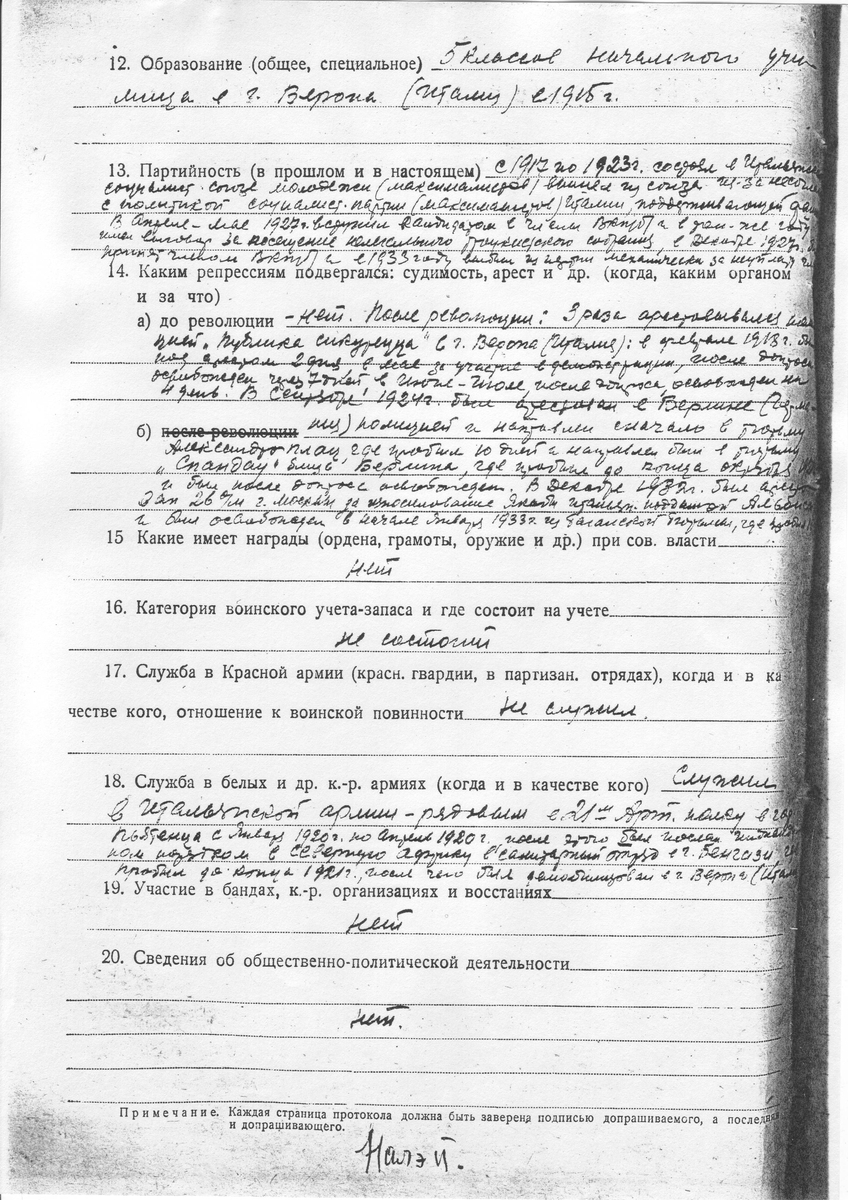 12. Образование (общее, специальное) 5 классов начального учи
лища в г. Верона (Италия) в 1915 г.
13. Партийность (в прошлом и в настоящем) с 1917 по 1923 г. состоял в Итальян
социалист. союзе молодежи (максималистов) вышел из союза из-за несогла
с политикой социалист. партии (максималистов) Италии, поддерживающей
В Апреле-Мае 1927 г. вступил кандидатом в члены ВКП(б) и в том-же году
имел выговор за посещение нелегального троцкистского собрания, в Декабре 1927 г.
принят членом ВКП(б) в 1933 году выбыл из партии механически за неуплату
14. Каким репрессиям подвергался: судимость, арест и др. (когда, каким органом
и за что)
а) до революции – нет. После революции: 3 раза арестовывался поли
цией „Публика сикурецца" в г. Верона (Италия): в феврале 1918 г. был
под арестом 2 дня, в мае за участие в демонстрации, после допроса
освобожден через 7 дней, в Июне-Июле, после допроса освобожден на
4 день. В Сентябре 1924 г. был арестован в Берлине (Герма-
б) после революции ния) полицией и направлен сначало в тюрьму
Александр плац, где пробыл 10 дней и направлен был в тюрьму
„Спандау" близь Берлина, где пробыл до конца октября
и был после допроса освобожден. В Декабре 1932 г. был арес
26 г. Москвы за изнасилование
и был освобожден в начале Января 1933 г. из Таганской тюрьмы, где
15 Какие имеет награды (ордена, грамоты, оружие и др.) при сов. власти
нет
16. Категория воинского учета-запаса и где состоит на учете
не состоит
17. Служба в Красной армии (красн. гвардии, в партизан. отрядах), когда и в ка
честве кого, отношение к воинской повинности не служил.
18. Служба в белых и др. к.-р. армиях (когда и в качестве кого) Служил
в Итальянской армии – рядовым в 21м Арт. полку в гор
Пьяченца с Января 1920 г. по Апрель 1920 г. после этого был послан
порядком в Северную Африку в санитарный отряд в г. Бенгази, где
пробыл до конца 1921 г., после чего был демобилизован в г. Верона (Итал
19. Участие в бандах, к.-р. организациях и восстаниях
нет
20. Сведения об общественно-политической деятельности
нет.
Примечание. Каждая страница протокола должна быть заверена подписью допрашиваемого, а последняя
и допрашивающего.